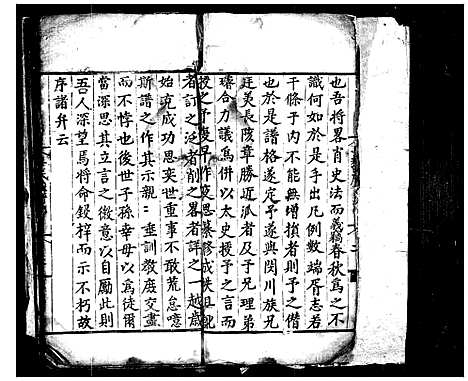 也吾將畧肖史法而義竊春秋為之不
識何如於是手出凡例數端胥志若
干條于內不能無增損者則予之僭
也於是譜格遂定予遂與閔川族兄
廷美長陵章勝近洙者及子兄理弟
璿合力議為併以太史授予之言而
授之予後早作夜思纂修成帙且
者訂之泛者削之畧者詳之一越歲
始克成功思奕世重事不敢荒怠噫
斯譜之作其示親二垂訓教庭交盡
而不悖也後世子孫幸毋以為徒爾
當深思其立言之微意以自勵此則
吾人深望焉將命鋟梓而示不朽故
序諸弁云